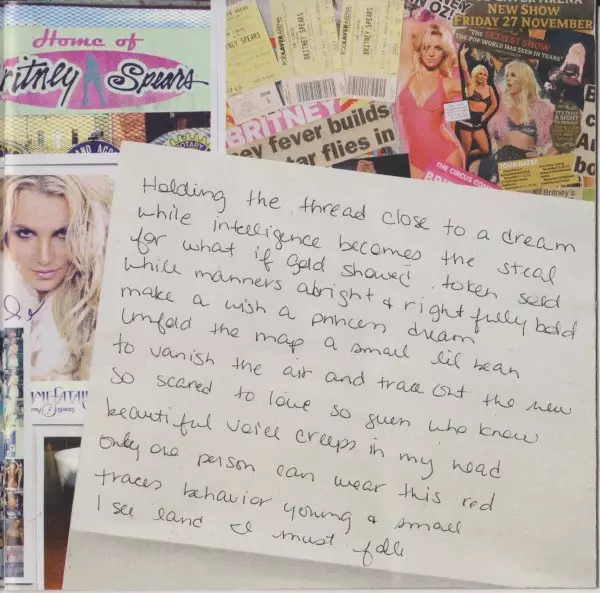 Home of
Britney Spears
BRITNEY SPEARS
BRITNEY SPEARS
NEW SHOW
FRIDAY 27 NOVEMBER
"THE SEXIEST SHOW
THE POP WORLD HAS SEEN IN YEARS"
BRITNEY
ey fever builds
tar flies in
THE CIRCUS
TOUR DATES
Britney's
Holding the thread close to a dream
while intelligence becomes the steal
for what if gold showed token seed
while manners abright & rightfully bold
make a wish a princess dream
Unfold the map a small lil bean
to vanish the air and trace out the new
so scared to love so guess who knew
beautiful voice creeps in my head
only one person can wear this red
traces behavior young & small
I see land & I must fall